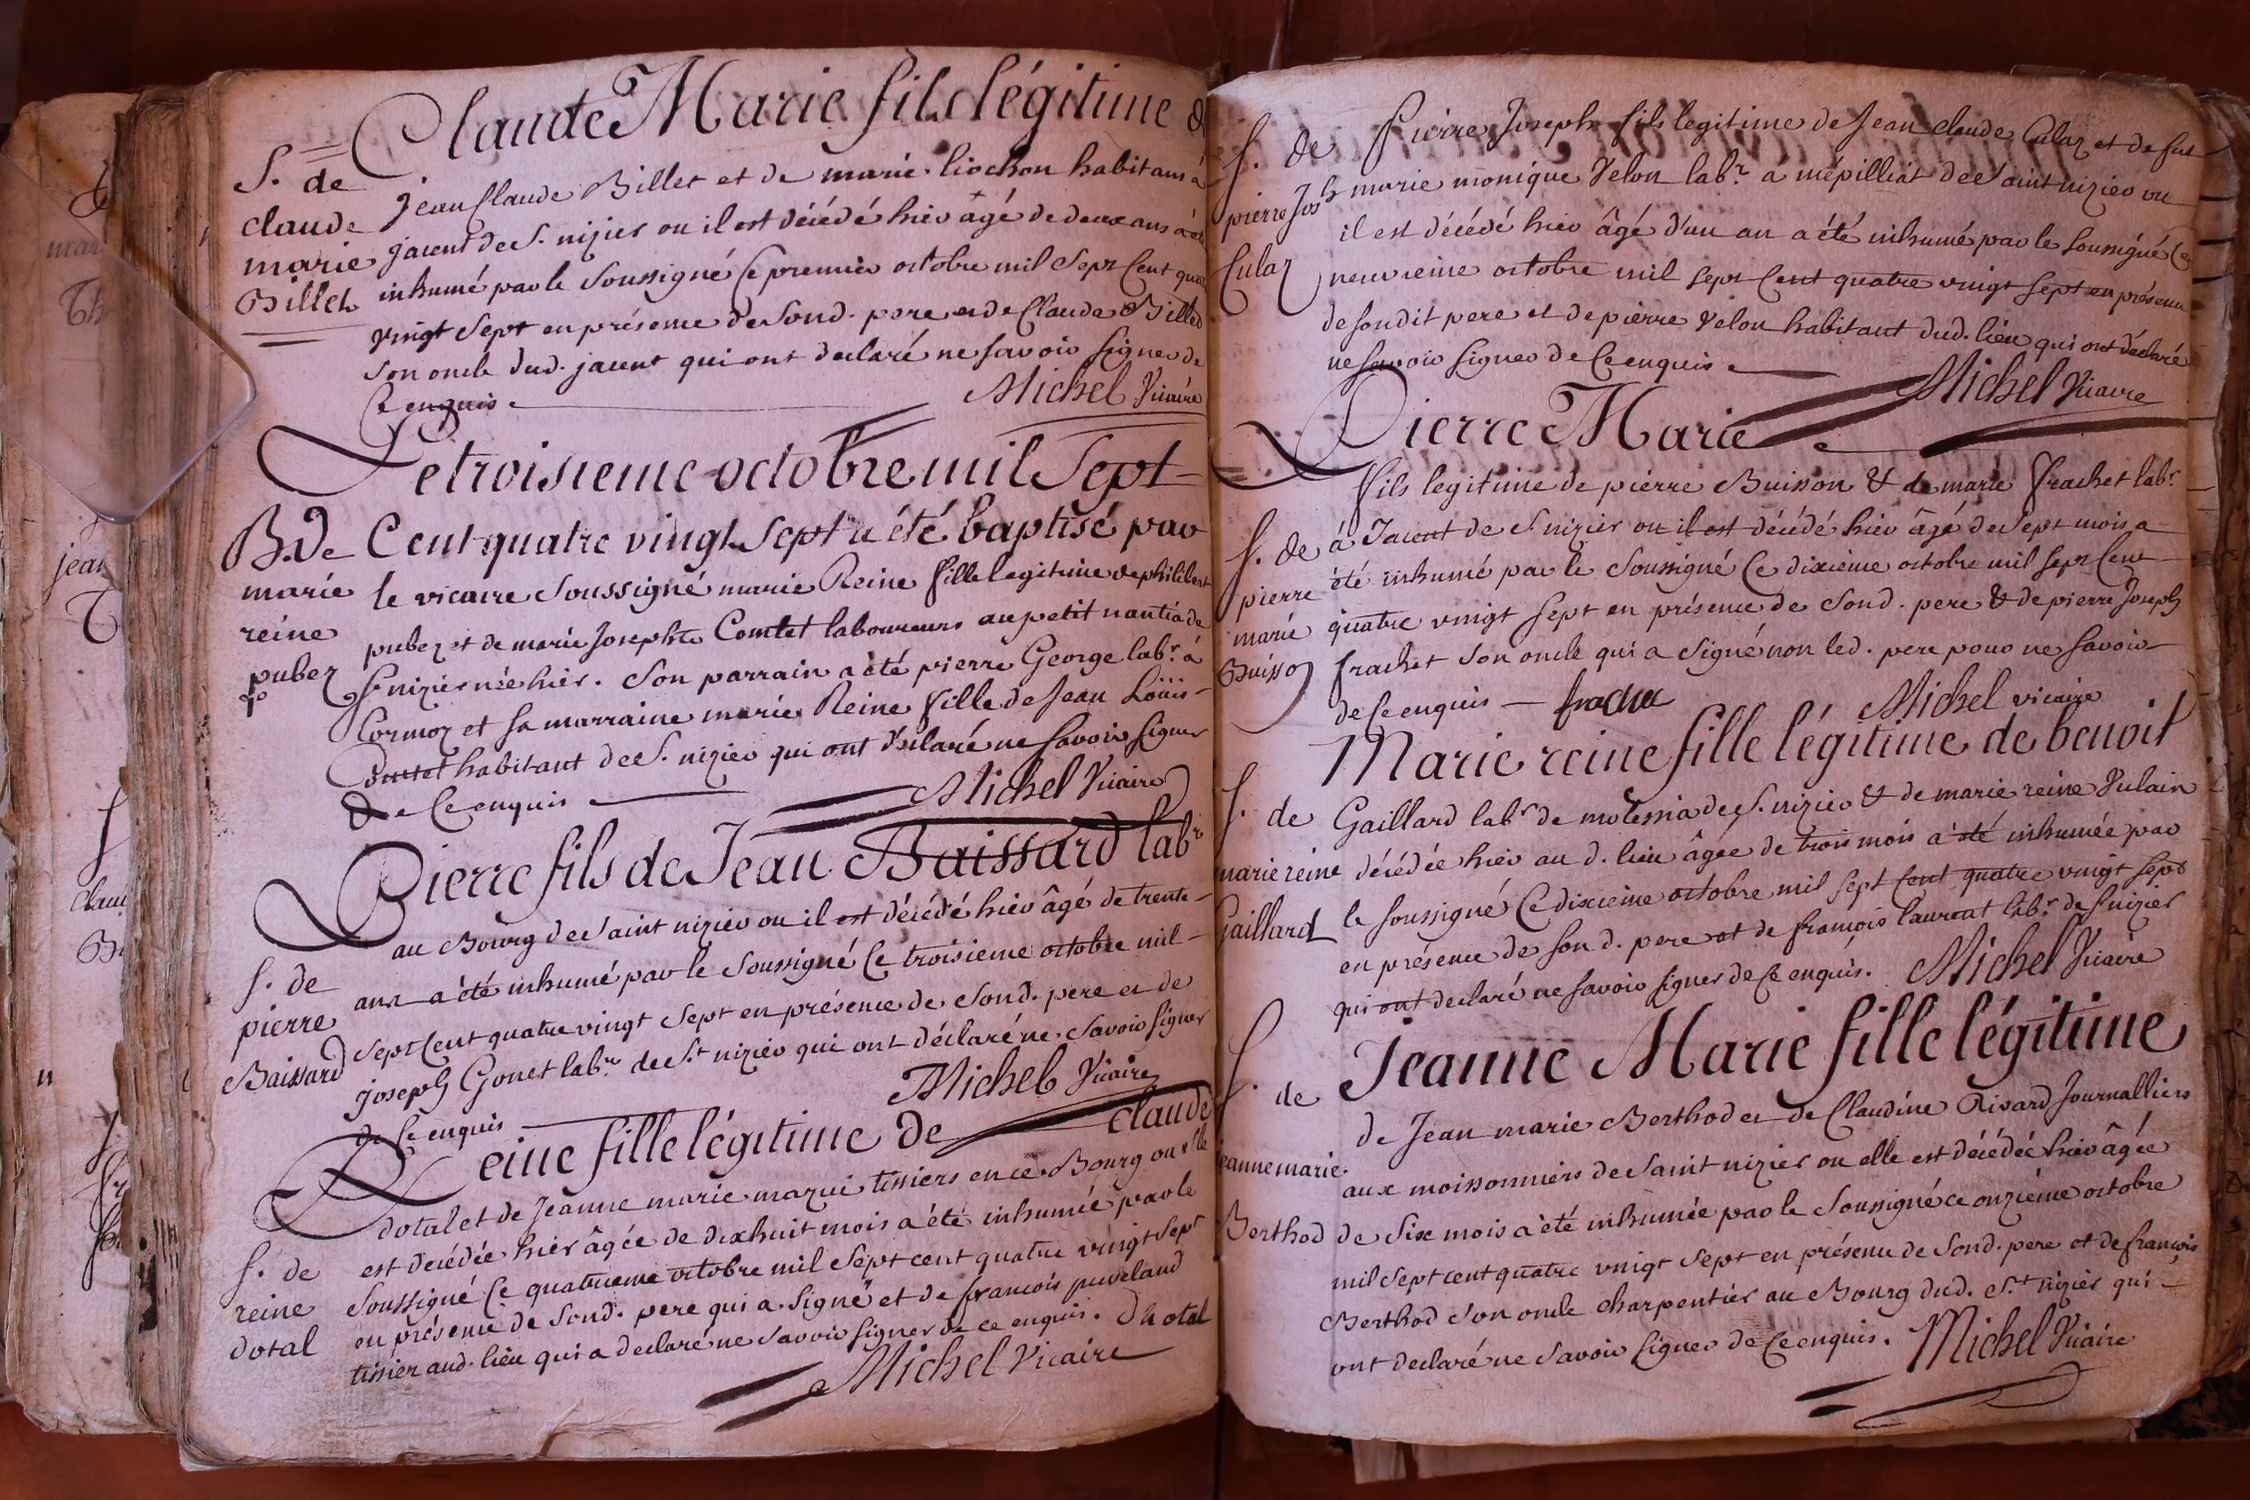 Claude Marie fils légitime de
S. de
claude
marie
Billet
jean Claude Billet et de marie liochon habitans à
jacent de S. nizier ou il est décédé hier âgé de deux ans a été
inhumé par le soussigné ce premier octobre mil sept cent quatre
vingt sept en présence de son d. pere et de Claude Billet
son oncle dud. jacent qui ont declaré ne savoir signer de
ce enquis. Michel Vicaire
Le troisieme octobre mil sept
B. de
marie
reine
pubez
Cent quatre vingt sept a été baptisé par
le vicaire soussigné marie Reine fille legitime de philibert
pubez et de marie Josephte Comtet laboureurs au petit nantia de
St nizier née hier. Son parrain a été pierre George labr. à
Cormoz et sa marraine marie Reine fille de Jean Loüis
Comtet habitant de S. nizier qui ont déclaré ne savoir signer
de ce enquis Michel Vicaire
Pierre fils de Jean Baissard labr
S. de
pierre
Baissard
au Bourg de Saint nizier ou il est décédé hier âgé de trente
ans a été inhumé par le soussigné ce troisieme octobre mil
sept cent quatre vingt sept en présence de son d. pere et de
joseph Gonet labr. de St nizier qui ont déclaré ne savoir signer
de ce enquis Michel Vicaire
Reine fille légitime de claude
S. de
reine
dotal
dotal et de Jeanne marie mazui tissiers en ce Bourg ou elle
est decédée hier âgée de dixhuit mois a été inhumée par le
soussigné ce quatrieme octobre mil sept cent quatre vingt sept
en présence de son d. pere qui a signé et de françois puveland
tissier aud. lieu qui a declaré ne savoir signer de ce enquis. Dhotal
Michel Vicaire
S. de
pierre Josh
Culaz
Pierre Joseph fils legitime de Jean claude Culaz et de fut
marie monique Velon labr. a mépilliat de Saint nizier ou
il est décédé hier âgé d'un an a été inhumé par le soussigné ce
neuvieme octobre mil sept cent quatre vingt sept en présence
de sondit pere et de pierre Velon habitant dud. lieu qui ont déclaré
ne savoir signer de ce enquis.
Michel Vicaire
Pierre Marie
S. de
pierre
marie
Buisson
fils legitime de pierre Buisson & de marie frachet labr.
à Jacent de S nizier ou il est décédé hier âgé de sept mois a
été inhumé par le soussigné ce dixieme octobre mil sept cent
quatre vingt sept en présence de son d. pere & de pierre Joseph
frachet son oncle qui a signé non led. pere pour ne savoir
de ce enquis — frachet Michel vicaire
Marie reine fille légitime de benoit
S. de
marie reine
Gaillard
Gaillard labr de molessia de S. nizier & de marie reine Vulain
décédée hier au d. lieu âgée de trois mois a été inhumée par
le soussigné ce dixieme octobre mil sept cent quatre vingt sept
en présence de son d. pere et de françois laurent labr. de S nizier
qui ont declaré ne savoir signer de ce enquis. Michel Vicaire
Jeanne Marie fille légitime
S. de
jeanne marie
Berthod
de Jean marie Berthod et de Claudine Rivard Journalliers
aux moissonniers de Saint nizier ou elle est décédée hier âgée
de six mois a été inhumée par le soussigné ce onzieme octobre
mil sept cent quatre vingt sept en présence de son d. pere et de françois
Berthod son oncle charpentier au Bourg dud. St nizier qui
ont declaré ne savoir signer de ce enquis. Michel Vicaire